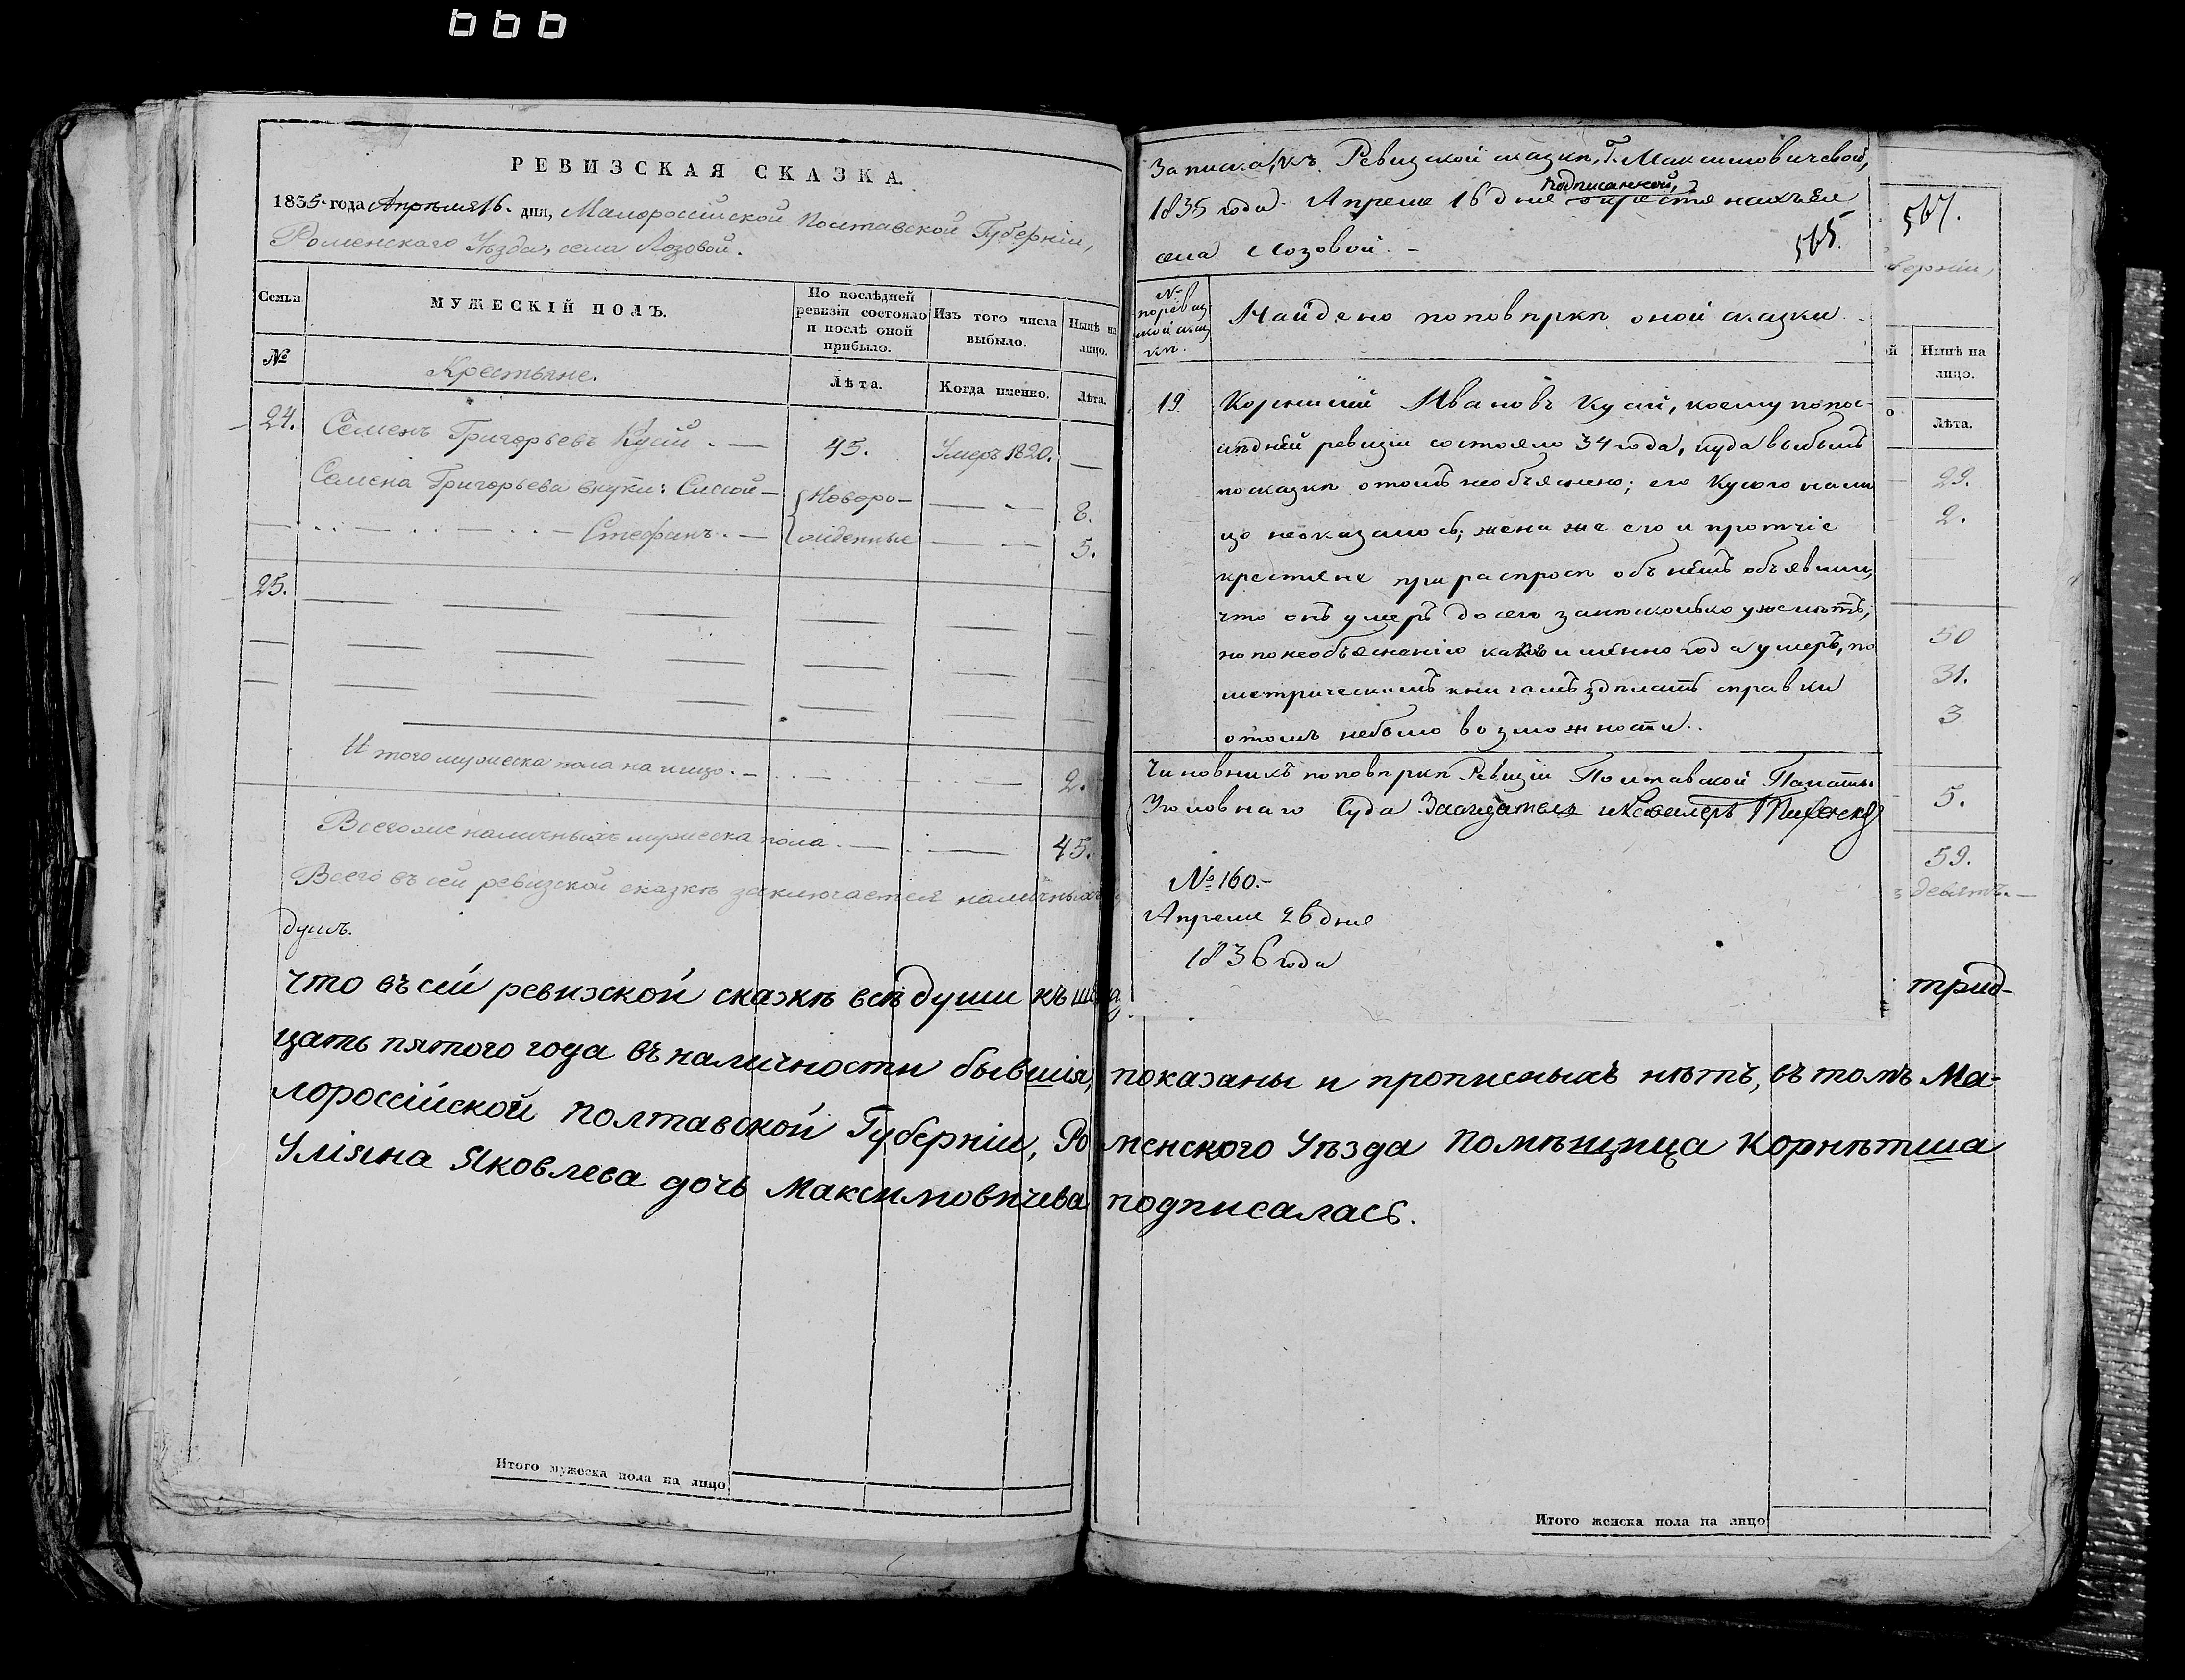 РЕВИЗСКАЯ СКАЗКА.
1835 года Апрѣля 16. дня, Малороссійской Полтавской Губерніи,
Роменскаго Уѣзда, села Лозовой.
Семьи
МУЖЕСКІЙ ПОЛЪ.
По послѣдней ревизіи состояло и послѣ оной прибыло.
Изъ того числа выбыло.
Нынѣ на лицо.
№
Крестьяне.
Лѣта.
Когда именно.
Лѣта.
24. Семенъ Григорьевъ Кусій. — 45. Умеръ 1820. —
Семена Григорьева внуки: Сысой — Новоро- — 8.
Стефанъ. — жденные — 5.
25.
Итого мужеска пола на лицо. — 2.
Всего же наличныхъ мужеска пола. — 45.
Всего въ сей ревизской сказкѣ заключается наличныхъ
душъ.
что въ сей ревизской сказкѣ всѣ души къ
цать пятого года въ наличности бывшія, показаны и прописныхъ нѣтъ, въ томъ Ма-
лороссійской Полтавской Губерніи, Роменского Уѣзда Помѣщица Корнѣтша
Уліяна Яковлева дочь Максимовичева подписалась.
Итого мужеска пола на лицо
Записка, къ Ревизской сказкѣ, Г. Максимовичевой,
1835 года Апреля 16 дня подписанной,
села Лозовой. —
565.
№ по ревизской сказки.
Найдено по повѣркѣ оной сказки
19. Корнилий Ивановъ Кусій, коему по пос-
лѣдней ревизіи состояло 34 года, куда выбылъ
по сказкѣ о томъ не объяснено; его Кусого на ли
цо не оказалось; жена же его и протчіе
крестяне при распросѣ объ нёмъ объявили,
что онъ умеръ до сего за нѣсколько уже лѣтъ,
но по необъяснению какого именно года умеръ, по
метрическимъ книгамъ здѣлать справки
о томъ небыло возможности.
Чиновникъ по повѣркѣ Ревизіи Полтавской Палаты
Уголовнаго Суда Засѣдатель
№ 160. —
Апреля 26 дня
1836 года
567.
берніи,
Нынѣ на лицо.
Лѣта.
29.
2.
50
31.
3
5.
59.
девять. —
трид-
Итого женска пола на лицо